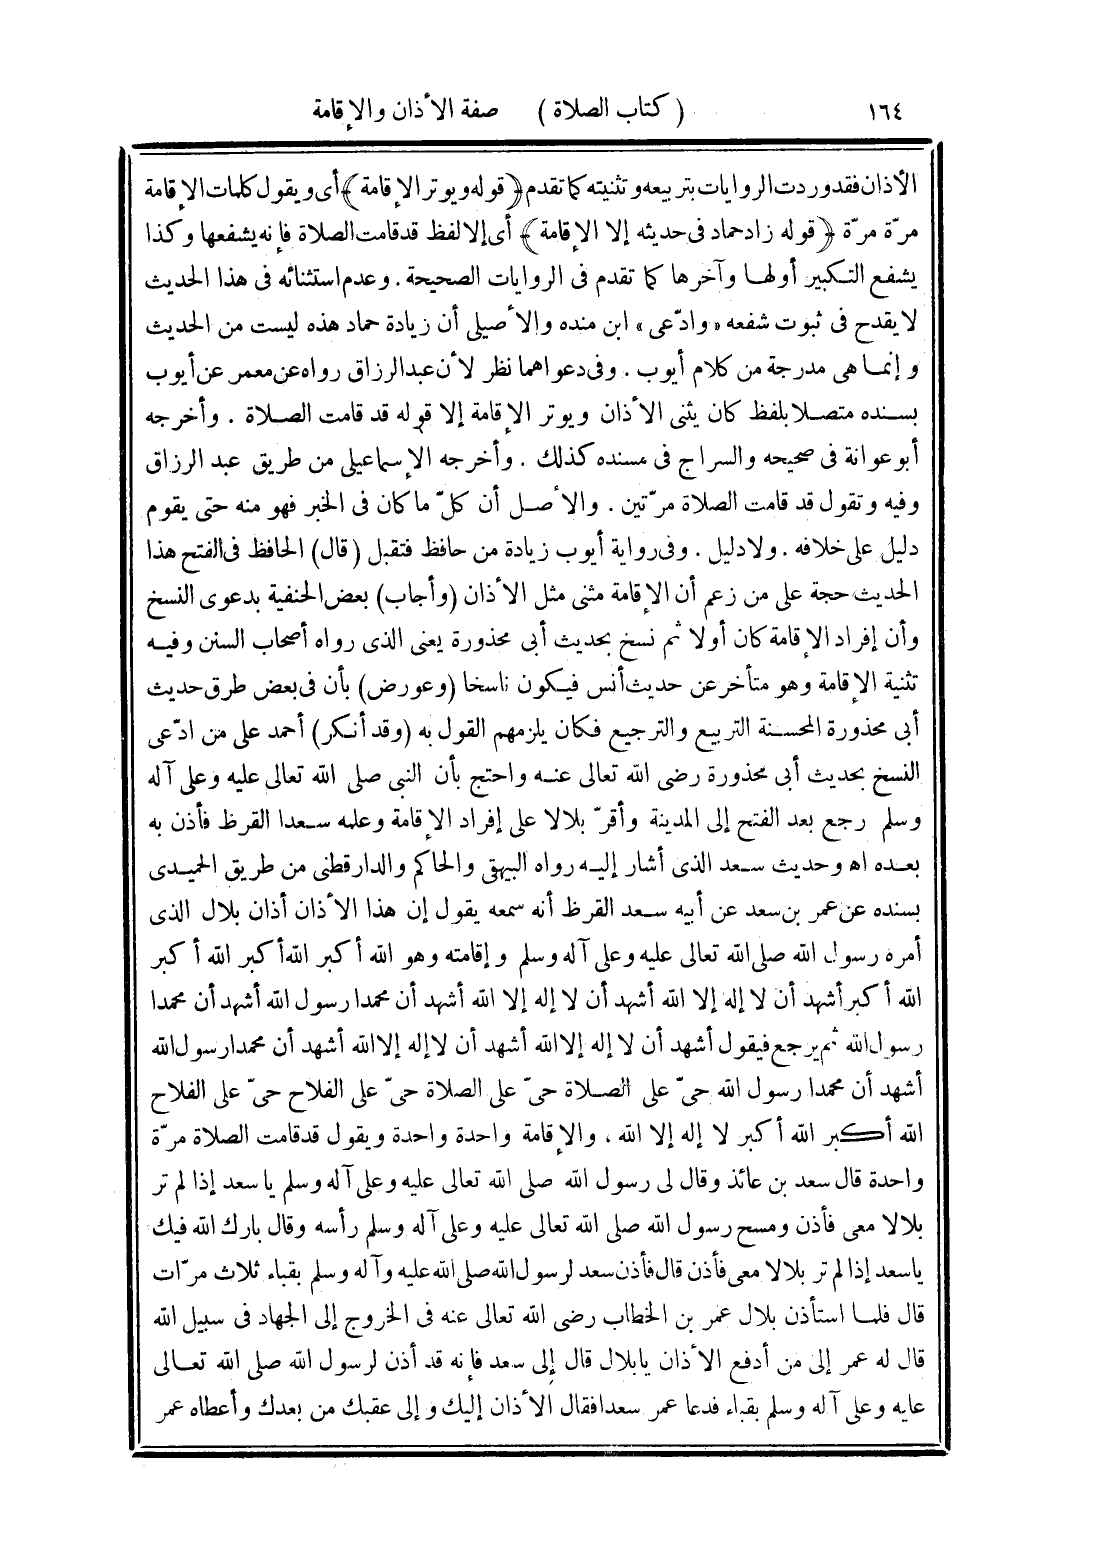 ١٦٤ ( كتاب الصلاة ) صفة الأذان والإقامة
الأذان فقد وردت الروايات بتربيعه وتثنيته كما تقدم ﴿قوله ويوتر الإقامة﴾ أى ويقول كلمات الإقامة
مرّة مرّة ﴿قوله زاد حماد فى حديثه إلا الإقامة﴾ أى إلا لفظ قد قامت الصلاة فإنه يشفعها وكذا
يشفع التكبير أولها وآخرها كما تقدم فى الروايات الصحيحة . وعدم استثنائه فى هذا الحديث
لا يقدح فى ثبوت شفعه «وادّعى» ابن منده والأصيلى أن زيادة حماد هذه ليست من الحديث
وإنما هى مدرجة من كلام أيوب . وفى دعواهما نظر لأن عبد الرزاق رواه عن معمر عن أيوب
بسنده متصلا بلفظ كان يثنى الأذان ويوتر الإقامة إلا قوله قد قامت الصلاة . وأخرجه
أبو عوانة فى صحيحه والسراج فى مسنده كذلك . وأخرجه الإسماعيلى من طريق عبد الرزاق
وفيه وتقول قد قامت الصلاة مرّتين . والأصل أن كلّ ما كان فى الخبر فهو منه حتى يقوم
دليل على خلافه . ولا دليل . وفى رواية أيوب زيادة من حافظ فتقبل (قال) الحافظ فى الفتح هذا
الحديث حجة على من زعم أن الإقامة مثنى مثل الأذان (وأجاب) بعض الحنفية بدعوى النسخ
وأن إفراد الإقامة كان أولا ثم نسخ بحديث أبى محذورة يعنى الذى رواه أصحاب السنن وفيه
تثنية الإقامة وهو متأخر عن حديث أنس فيكون ناسخا (وعورض) بأن فى بعض طرق حديث
أبى محذورة المحسنة التربيع والترجيع فكان يلزمهم القول به (وقد أنكر) أحمد على من ادّعى
النسخ بحديث أبى محذورة رضى الله تعالى عنه واحتج بأن النبى صلى الله تعالى عليه وعلى آله
وسلم رجع بعد الفتح إلى المدينة وأقرّ بلالا على إفراد الإقامة وعلمه سعدا القرظ فأذن به
بعده اه وحديث سعد الذى أشار إليه رواه البيهقى والحاكم والدارقطنى من طريق الحميدى
بسنده عن عمر بن سعد عن أبيه سعد القرظ أنه سمعه يقول إن هذا الأذان أذان بلال الذى
أمره رسول الله صلى الله تعالى عليه وعلى آله وسلم وإقامته وهو الله أكبر الله أكبر الله أكبر
الله أكبر أشهد أن لا إله إلا الله أشهد أن لا إله إلا الله أشهد أن محمدا رسول الله أشهد أن محمدا
رسول الله ثم يرجع فيقول أشهد أن لا إله إلا الله أشهد أن لا إله إلا الله أشهد أن محمدا رسول الله
أشهد أن محمدا رسول الله حىّ على الصلاة حىّ على الصلاة حىّ على الفلاح حىّ على الفلاح
الله أكبر الله أكبر لا إله إلا الله ، والإقامة واحدة واحدة ويقول قد قامت الصلاة مرّة
واحدة قال سعد بن عائذ وقال لى رسول الله صلى الله تعالى عليه وعلى آله وسلم يا سعد إذا لم تر
بلالا معى فأذن ومسح رسول الله صلى الله تعالى عليه وعلى آله وسلم رأسه وقال بارك الله فيك
يا سعد إذا لم تر بلالا معى فأذن قال فأذن سعد لرسول الله صلى الله عليه وآله وسلم بقباء ثلاث مرّات
قال فلما استأذن بلال عمر بن الخطاب رضى الله تعالى عنه فى الخروج إلى الجهاد فى سبيل الله
قال له عمر إلى من أدفع الأذان يا بلال قال إلى سعد فإنه قد أذن لرسول الله صلى الله تعالى
عليه وعلى آله وسلم بقباء فدعا عمر سعدا فقال الأذان إليك وإلى عقبك من بعدك وأعطاه عمر